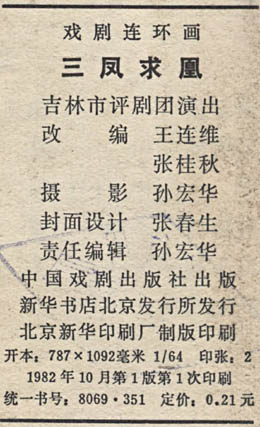 戏剧连环画
三凤求凰
吉林市评剧团演出
改 编 王连维
张桂秋
摄 影 孙宏华
封面设计 张春生
责任编辑 孙宏华
中国戏剧出版社出版
新华书店北京发行所发行
北京新华印刷厂制版印刷
开本：787×1092毫米 1/64 印张：2
1982年10月第1版第1次印刷
统一书号：8069·351 定价：0.21元